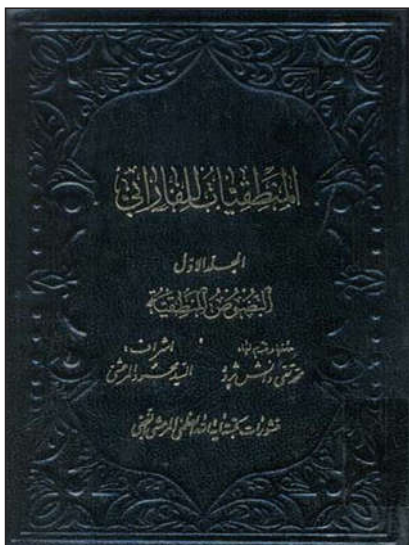 المنطقيات للفارابي
المجلد الاول
النصوص المنطقية
حققها وقدم لها اشراف:
محمد تقي دانش پژوه السيد محمود المرعشي
منشورات مكتبة آية الله العظمى المرعشي النجفي